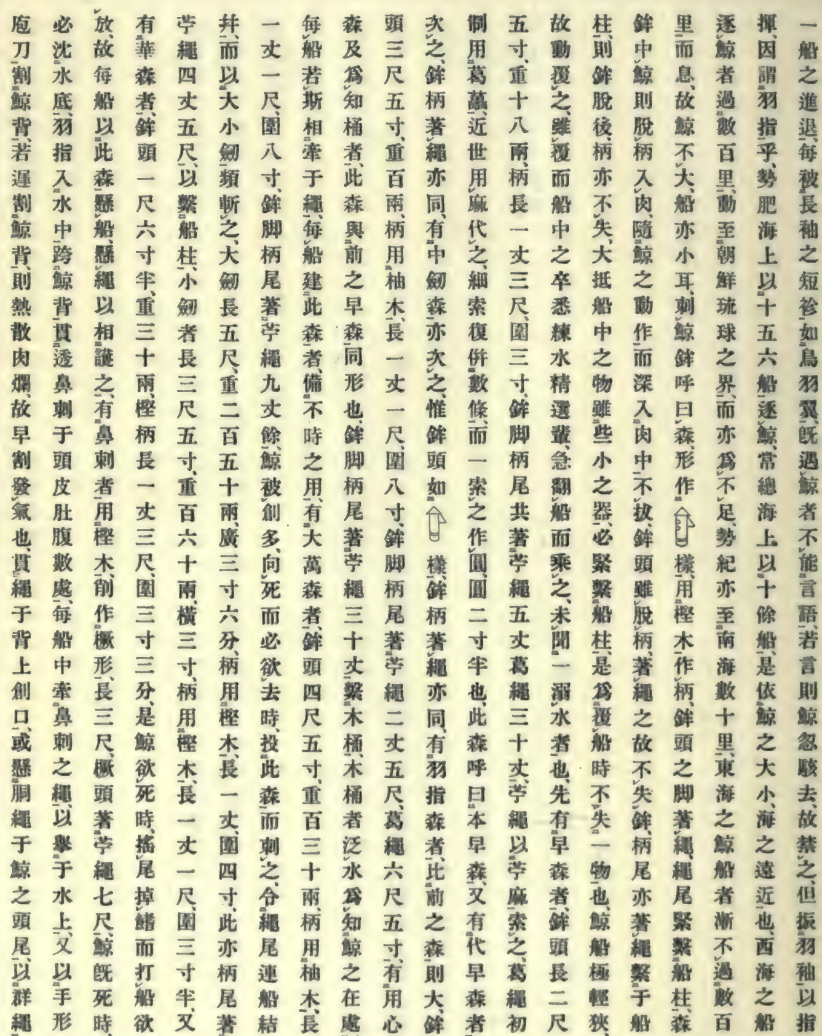 一船之進退、每被長袖之短袗如鳥羽翼、旣遇鯨者不能言語、若言則鯨忽駭去、故禁之、但振羽袖以指
揮、因謂羽指乎、勢肥海上以十五六船逐鯨、常總海上以十餘船、是依鯨之大小、海之遠近也、西海之船
逐鯨者過數百里、動至朝鮮琉球之界、而亦爲不足、勢紀亦至南海數十里、東海之鯨船者漸不過數百
里而息、故鯨不大、船亦小耳、刺鯨鉾呼曰森、形作樣、用樫木作柄、鉾頭之脚著繩、繩尾緊繫船柱、森
鉾中鯨則脫柄入肉、隨鯨之動作而深入肉中不拔、鉾頭雖脫柄、著繩之故不失鉾、柄尾亦著繩繫于船
柱、則鉾脫後、柄亦不失、大抵船中之物雖些小之器、必緊繫船柱、是爲覆船時不失一物也、鯨船極輕狹、
故動覆之、雖覆而船中之卒悉練水精選輩、急翻船而乘之、未聞一溺水者也、先有早森者、鉾頭長二尺
五寸、重十八兩、柄長一丈三尺、圍三寸、鉾脚柄尾共著苧繩五丈葛繩三十丈、苧繩以苧麻索之、葛繩初
制用葛藟、近世用麻代之、細索復併數條、而一索之作圓、圓二寸半也、此森呼曰本早森、又有代早森者
次之、鉾柄著繩亦同、有中劒森亦次之、惟鉾頭如樣、鉾柄著繩亦同、有羽指森者、比前之森則大、鉾
頭三尺五寸、重百兩、柄用柚木、長一丈一尺、圍八寸、鉾脚柄尾著苧繩二丈五尺、葛繩六尺五寸、有用心
森及爲知桶者、此森與前之早森同形也、鉾脚柄尾著苧繩三十丈繫木桶、木桶者泛水爲知鯨之在處、
每船若斯相牽于繩、每船建此森者、備不時之用、有大萬森者、鉾頭四尺五寸、重百三十兩、柄用柚木、長
一丈一尺、圍八寸、鉾脚柄尾著苧繩九丈餘、鯨被創多、向死而必欲去時、投此森而刺之、令繩尾連船結
幷、而以大小劒頻斬之、大劒長五尺、重二百五十兩、廣三寸六分、柄用樫木、長一丈、圍四寸、此亦柄尾著
苧繩四丈五尺、以繫船柱、小劒者長三尺五寸、重百六十兩、橫三寸、柄用樫木、長一丈一尺、圍三寸半、又
有華森者、鉾頭一尺六寸半、重三十兩、樫柄長一丈三尺、圍三寸三分、是鯨欲死時、搖尾掉鰭而打船欲
放、故每船以此森懸船、懸繩以相護之、有鼻刺者、用樫木、削作橛形、長三尺、橛頭著苧繩七尺、鯨旣死時、
必沈水底、羽指入水中跨鯨背、貫透鼻刺于頭皮肚腹數處、每船中牽鼻刺之繩、以擧于水上、又以手形
庖刀割鯨背、若遲割鯨背、則熱散肉爛、故早割發氣也、貫繩于背上創口、或懸胴繩于鯨之頭尾、以群繩